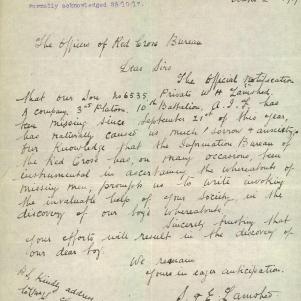 Formally acknowledged 28/10/17.
The Officers of Red Cross Bureau
Dear Sirs
The Official Notification
that our Son No 6535 Private W H Lamshed,
A Company, 3rd Platoon, 10th Battalion, A.I.F. has
been missing since September 21st of this year,
has naturally caused us much sorrow & anxiety.
Our knowledge that the Information Bureau of
the Red Cross has, on many occasions, been
instrumental in ascertaining the whereabouts of
missing men, prompts us to write invoking
the invaluable help of your Society in the
discovery of our boy's whereabouts.
Sincerely trusting that
your efforts will result in the discovery of
our dear boy.
We remain
Yours in eager anticipation.
P.S. Kindly address
S. & E. Lamshed